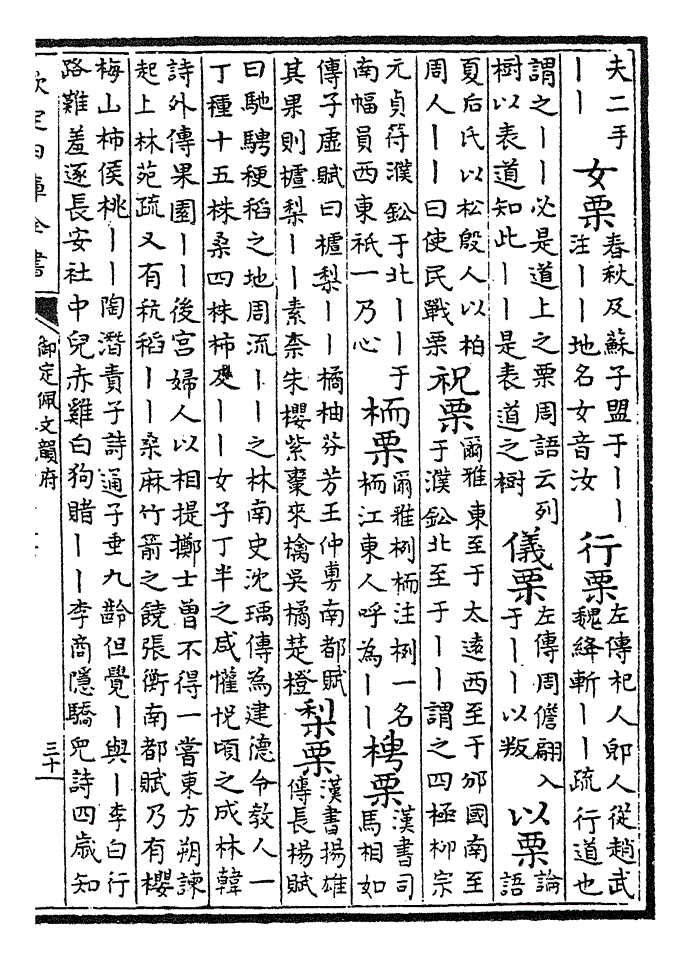 夫二手
丨丨
女栗
春秋及蘇子盟于丨丨
注丨丨地名女音汝
行栗
左傳杞人郳人從趙武
魏絳斬丨丨疏行道也
謂之丨丨必是道上之栗周語云列
樹以表道知此丨丨是表道之樹
儀栗
左傳周儋翩入
于丨丨以叛
以栗
論
語
夏后氏以松殷人以柏
周人丨丨曰使民戰栗
祝栗
爾雅東至于太逺西至于邠國南至
于濮鈆北至于丨丨謂之四極柳宗
元貞符濮鈆于北丨丨于
南幅員西東祇一乃心
栭栗
爾雅栵栭注栵一名
栭江東人呼為丨丨
梬栗
漢書司
馬相如
傳子虛賦曰樝梨丨丨橘柚芬芳王仲甹南都賦
其果則樝梨丨丨素柰朱櫻紫棗來檎吳橘楚橙
梨栗
漢書揚雄
傳長楊賦
曰馳騁稉稻之地周流丨丨之林南史沈瑀傳為建德令教人一
丁種十五株桑四株柿及丨丨女子丁半之咸懽悅頃之成林韓
詩外傳果園丨丨後宫婦人以相提擲士曾不得一嘗東方朔諫
起上林苑疏又有秔稻丨丨桑麻竹箭之饒張衡南都賦乃有櫻
梅山柿侯桃丨丨陶潛責子詩通子垂九齡但覺丨與丨李白行
路難羞逐長安社中兒赤雞白狗賭丨丨李商隱驕兒詩四歲知
欽定四庫全書
御定佩文韻府
三十